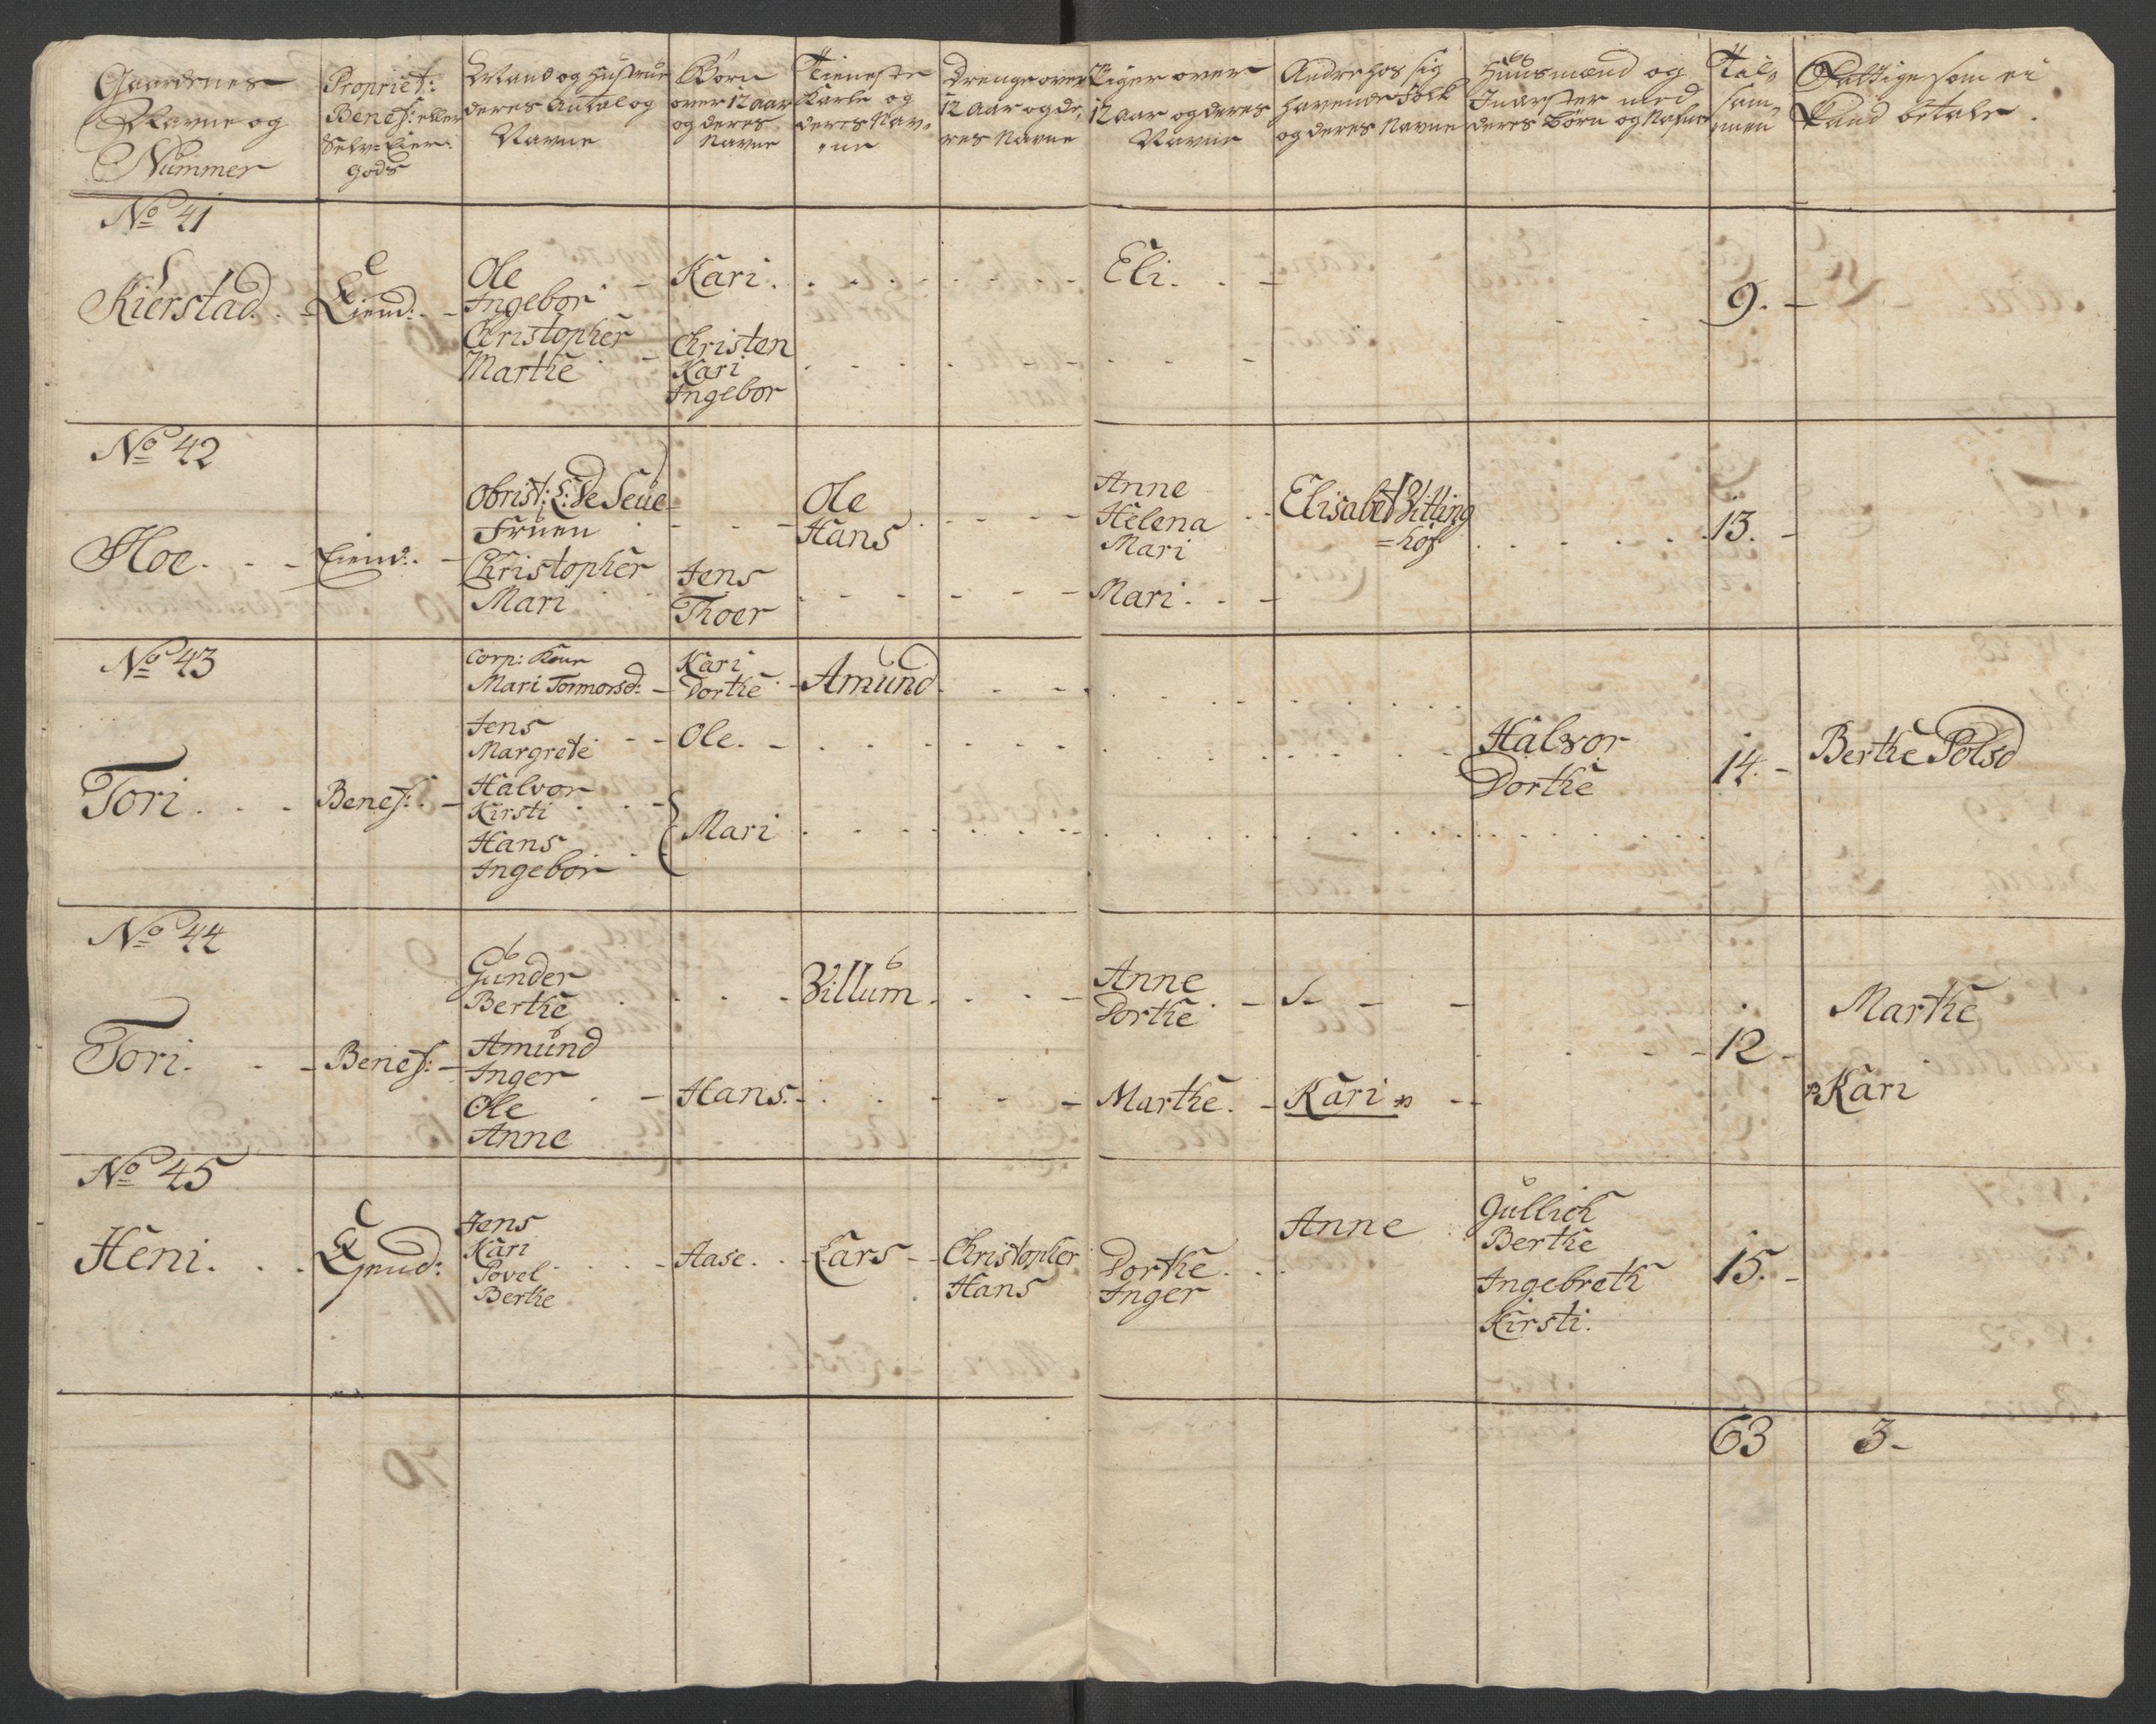 Gaardenes
Navne og
Nummer
Propriet:
Benef: eller
Selv-Eier
gods
Mand og Hustrue
deres Antal og
Navne
Børn
over 12 aar
og deres
Navne
Tieneste
Karle og
deres Nav-
ne
Drenge over
12 Aar og de-
res Navne
Piger over
12 Aar og deres
Navne
Andre hos sig
havende Folk
og deres Navne
Huusmænd og
Inderster med
deres Børn og Nafne
Tal-
sam-
men
Fattige som ei
kand betale.
No 41
Kierstad. -
Eiend: -
Ole
Ingebor
Christopher
Marthe
Kari.
Christen
Kari
Ingebor
Eli. . -
9. -
No 42
Hoe. . -
Eiend: -
Obrist: L: De Seue
Fruen
Christopher
Mari
Jens
Thoer
Ole
Hans
Anne
Helena
Mari
Mari. . -
Elisabet Vitting
=hof
13. -
No 43
Tori. . -
Benef: -
Corp:
Mari Tormorsd: -
Jens
Margrete
Halvor
Kirsti
Hans
Ingebor
Kari
Dorthe
Ole. -
Mari
Amund
Halvor
Dorthe
14. -
Berthe Polsd
No 44
Tori. . -
Benef: -
Gunder
Berthe
Amund
Inger
Ole
Anne
Hans. -
Villum.
Anne
Dorthe
Marthe. -
Kari
12 -
Marthe
Kari
No 45
Heni. . .
Jens
Kari
Povel
Berthe
Aase. .
Lars -
Christopher
Hans
Dorthe. . .
Inger
Anne
Gullich
Berthe
Ingebreth
Kirsti.
15. -
63
3 -